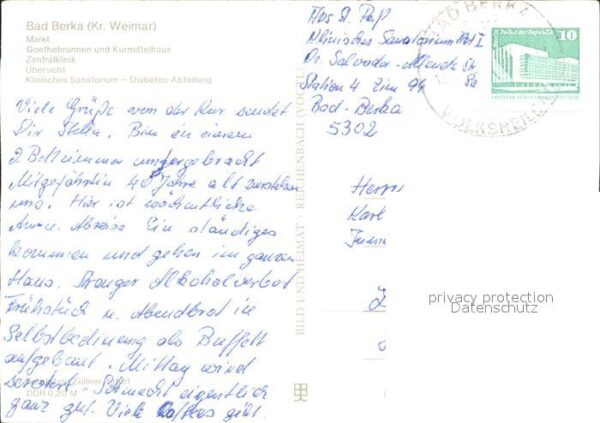 Bad Berka (Kr. Weimar)
Markt
Goethebrunnen und Kurmittelhaus
Zentralklinik
Übersicht
Klinisches Sanatorium – Diabetes-Abteilung
Viele Grüße von der Kur sendet
Dir Stella. Bin in einem
2 Bettzimmer untergebracht
Mitgefährtin 40 Jahre alt verstehen
uns. Hier ist wöchentliche
Anw. Abreise Ein ständiges
kommen und gehen im ganzen
Haus. Strenger Alkoholverbot
Frühstück u. Abendbrot in
Selbstbedienung als Buffett
aufgebaut. Mittag wird
serviert. Schmeckt eigentlich
ganz gut. Viele
DDR 0,20 M
BILD UND HEIMAT · REICHENBACH (VOGTL)
Klinisches Sanatorium
Dr. Salvador-Allende
Station 4 Zim 94
Bad-Berka
5302
Herrn
Karl
BAD BERKA
VOLKSHEIL
Palast der Republik
10
privacy protection
Datenschutz